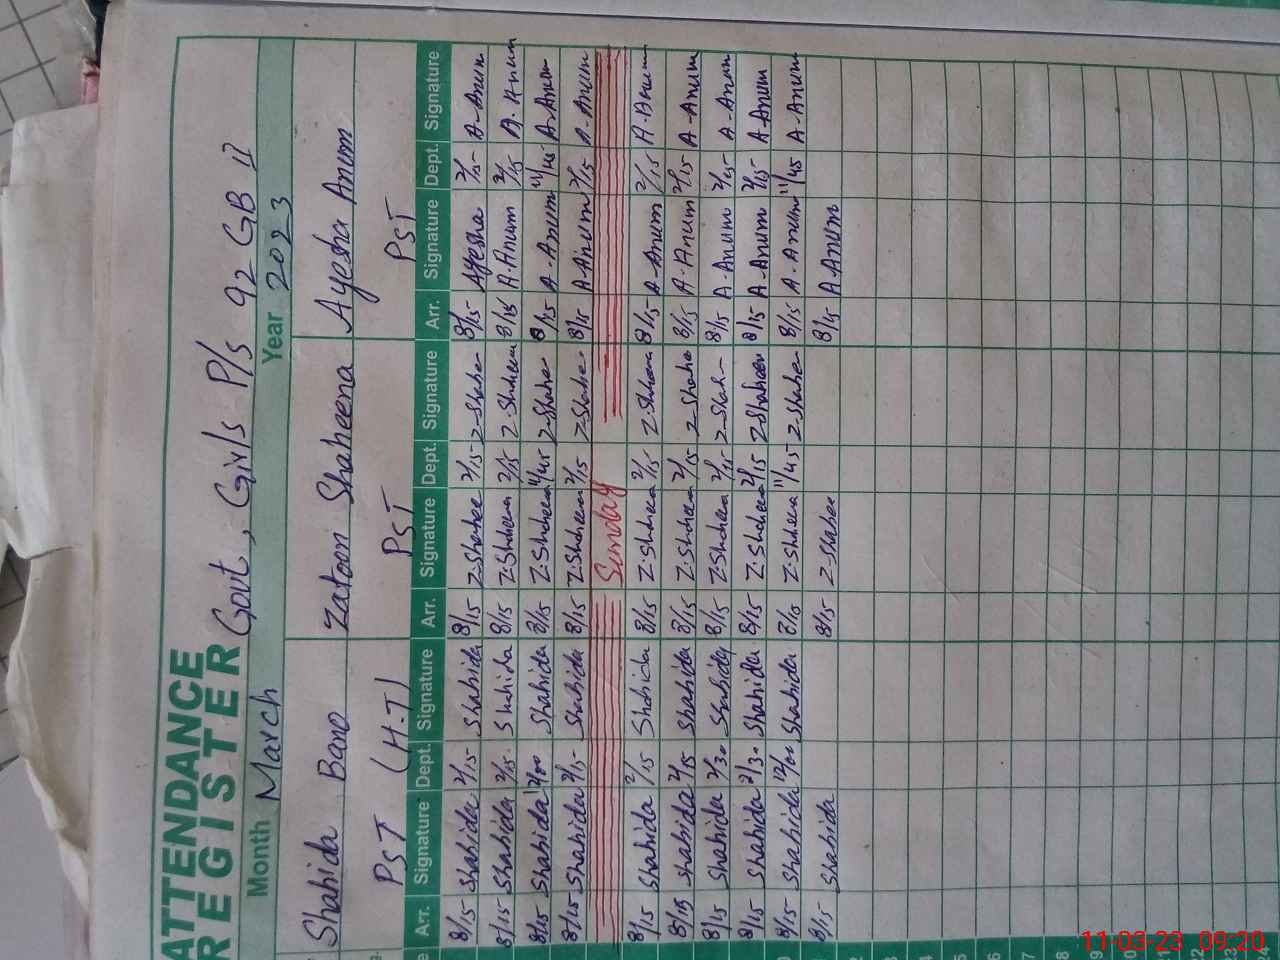 ATTENDANCE
REGISTER Govt, Girls P/s 92 GB II
Month March Year 2023
Shahida Bano Zatoon Shaheena Ayesha Anum
PST (H.T) PST PST
Arr. Signature Dept. Signature Arr. Signature Dept. Signature Arr. Signature Dept. Signature
8/15 Shahida 2/15 Shahida 8/15 Z-Shahee 2/15 Z-Shahe 8/15 Ayesha 2/15 A-Anum
8/15 Shahida 2/15 Shahida 8/15 Z-Shaheena 2/15 Z-Shaheen 8/15 A-Anum 2/15 A-Anum
8/15 Shahida 12/00 Shahida 8/15 Z-Shaheena 11/45 Z-Shahee 8/15 A-Anum 11/45 A-Anum
8/15 Shahida 2/15 Shahida 8/15 Z-Shaheena 2/15 Z-Shahee 8/15 A-Anum 2/15 A-Anum
Sunday
8/15 Shahida 2/15 Shahida 8/15 Z-Shaheena 2/15 Z-Shaheena 8/15 A-Anum 2/15 A-Anum
8/15 Shahida 2/15 Shahida 8/15 Z-Shaheena 2/15 Z-Shahe 8/15 A-Anum 2/15 A-Anum
8/15 Shahida 2/30 Shahida 8/15 Z-Shaheena 2/15 Z-Shah- 8/15 A-Anum 2/15 A-Anum
8/15 Shahida 2/30 Shahida 8/15 Z-Shaheena 2/15 Z-Shaheen 8/15 A-Anum 2/15 A-Anum
8/15 Shahida 12/00 Shahida 8/15 Z-Shaheena 11/45 Z-Shahee 8/15 A-Anum 11/45 A-Anum
8/15 Shahida 8/15 Z-Shahee 8/15 A-Anum
12
13
14
15
16
17
18
19
20
21
22
23
24
11-03-23 09:20